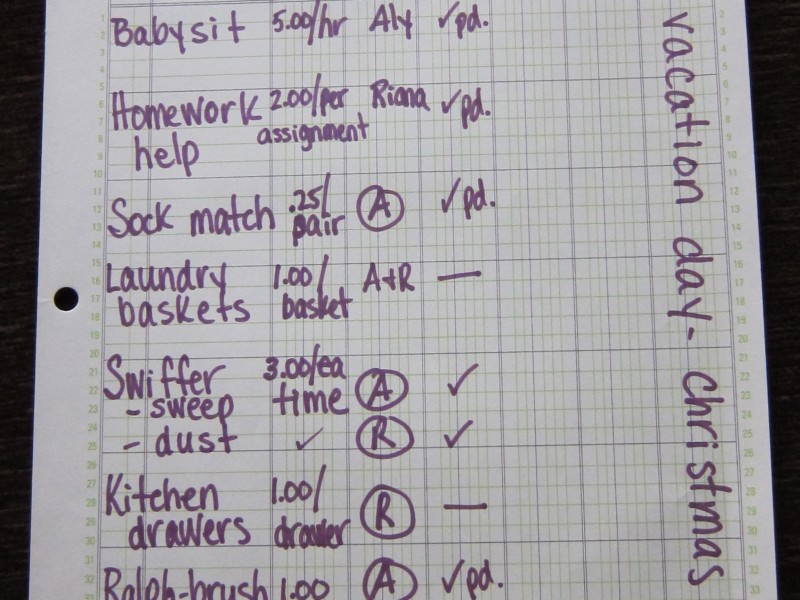 Babysit 5.00/hr Aly ✓pd.
Homework 2.00/per Riana ✓pd.
help assignment
Sock match .25/ A ✓pd.
pair
Laundry 1.00/ A+R —
baskets basket
Swiffer 3.00/ea A ✓
- sweep time
- dust ✓ R ✓
Kitchen 1.00/ R —
drawers drawer
Ralph-brush 1.00 A ✓pd.
vacation day- christmas